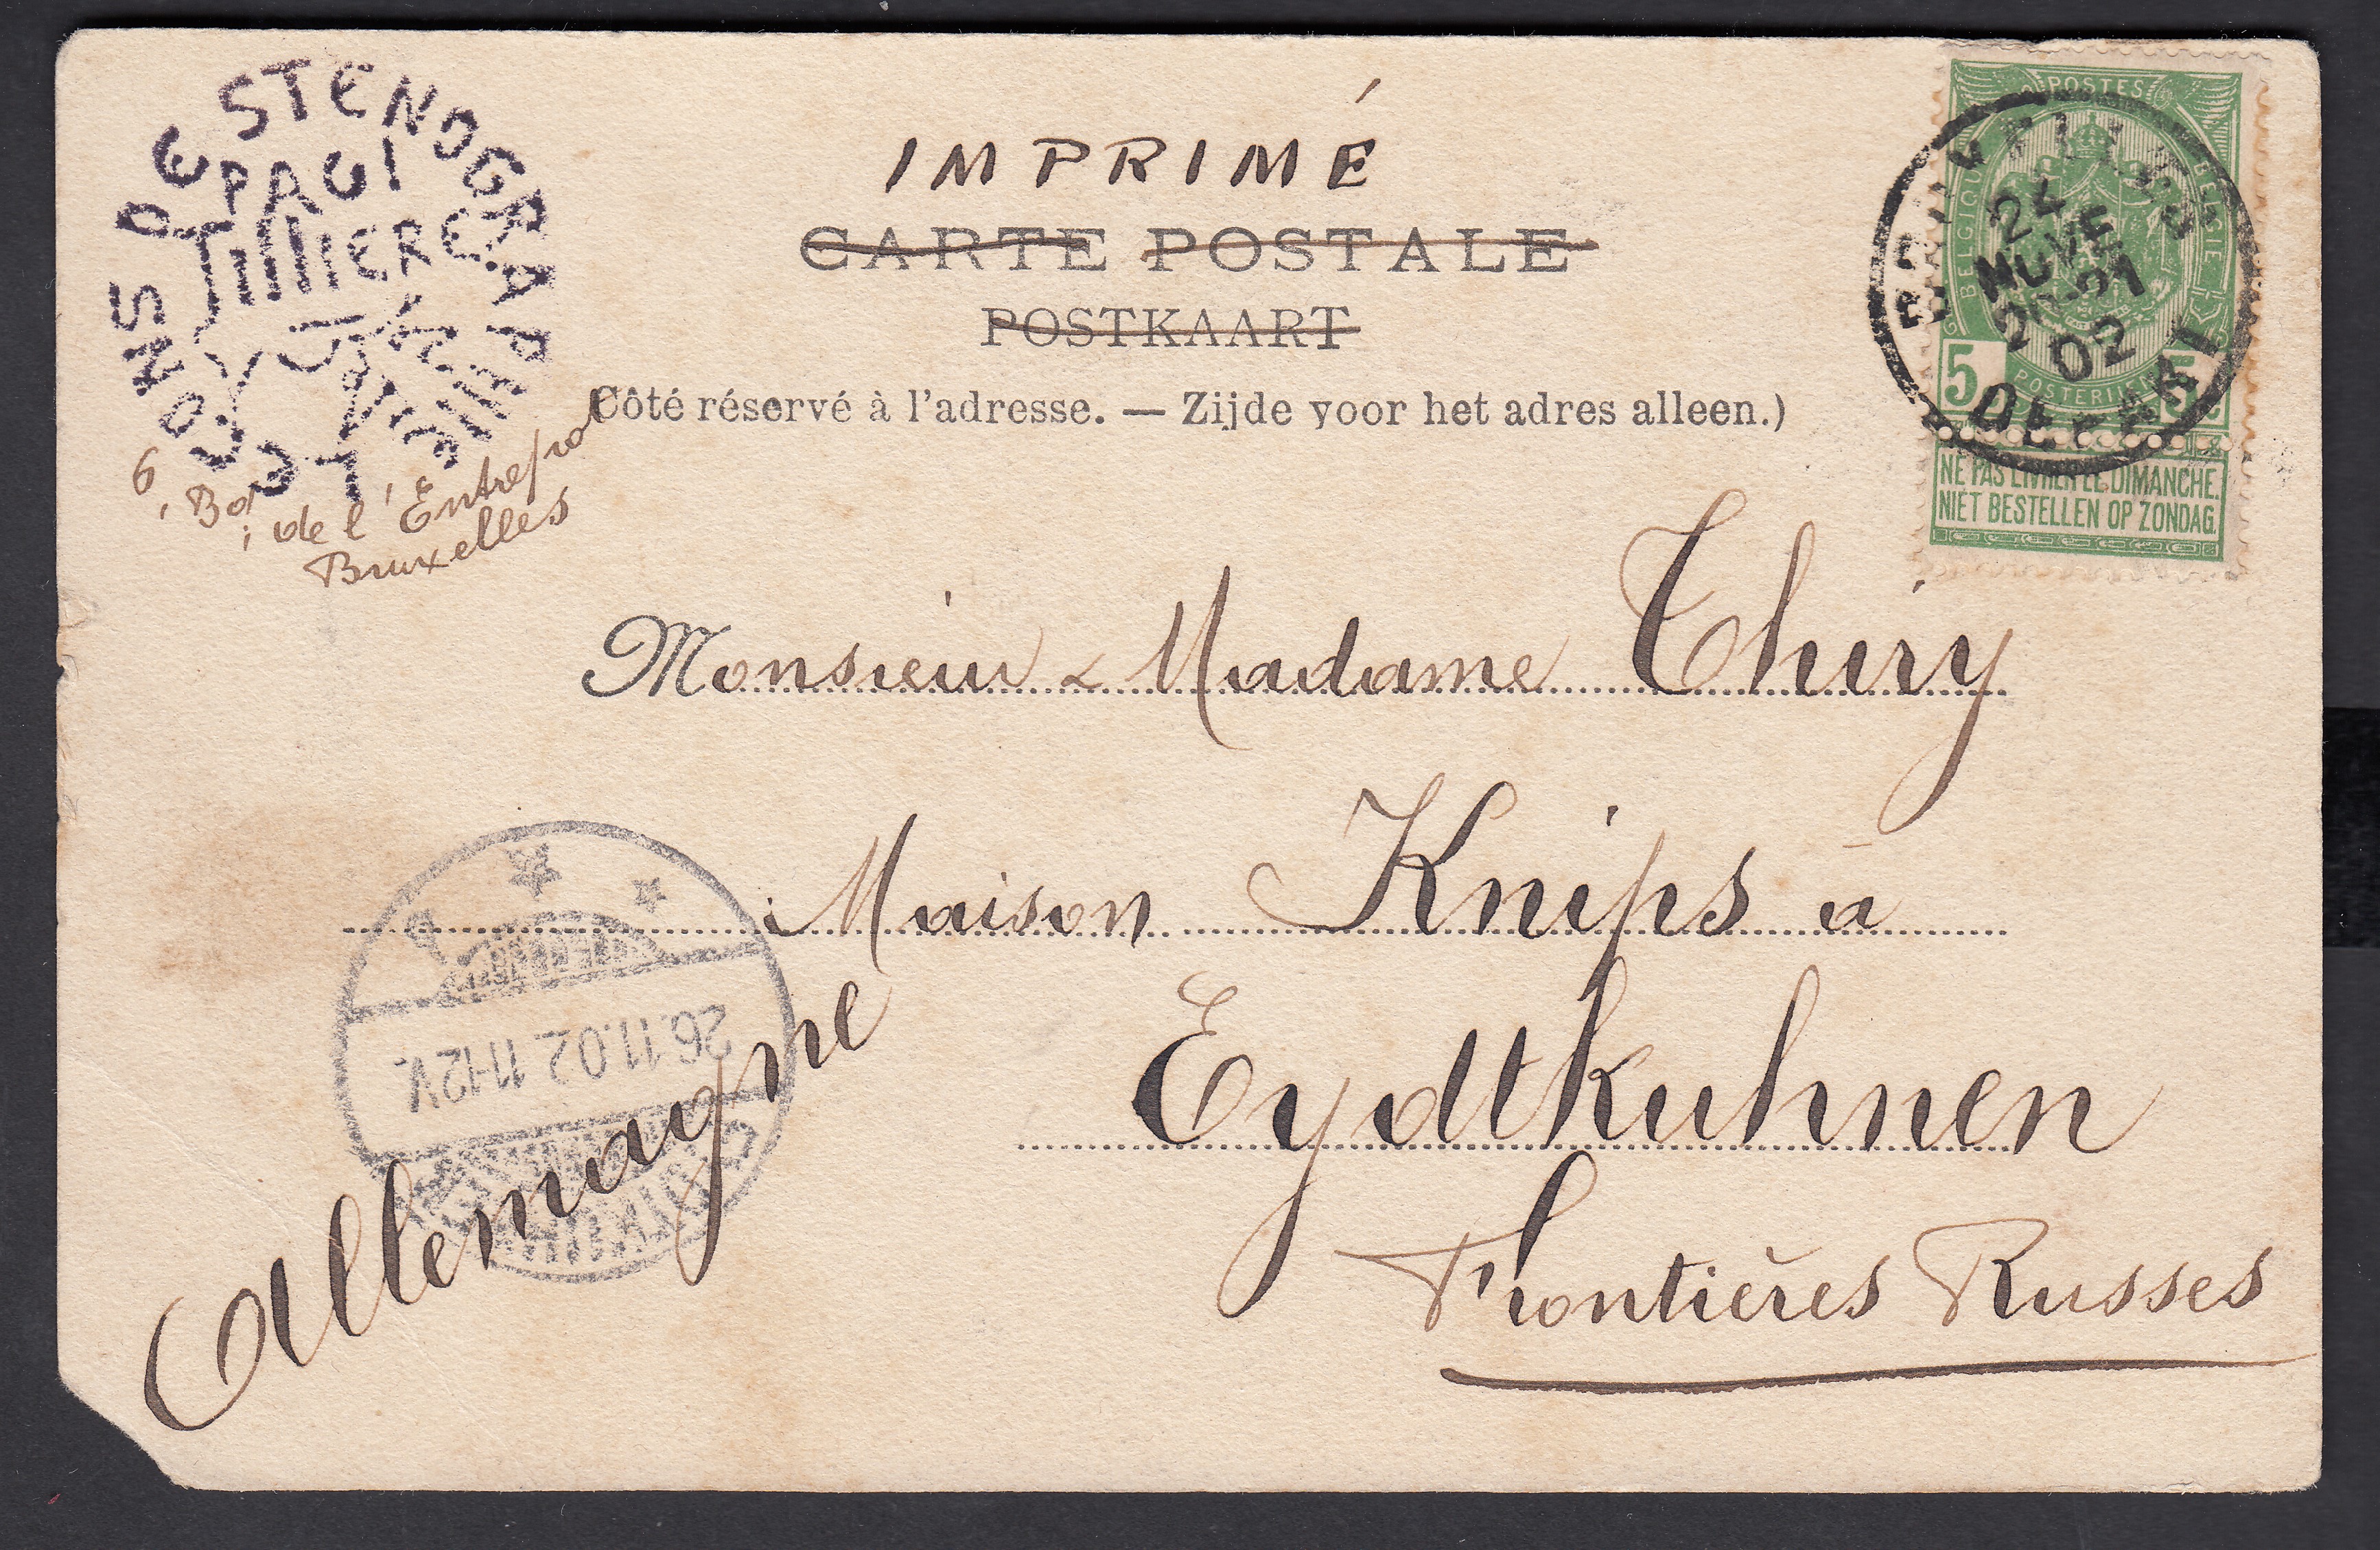 DE STENOGRAPHIE
PAUL
TILLIER
COURS
6, Bd
de l'Entrepot
Bruxelles
IMPRIMÉ
CARTE POSTALE
POSTKAART
Côté réservé à l'adresse. — Zijde voor het adres alleen.)
POSTES
BELGIQUE
BELGIË
POSTERIJEN
5 5
NE PAS LIVRER LE DIMANCHE.
NIET BESTELLEN OP ZONDAG.
BRUXELLES
24
NOVE
02
DEPART
Monsieur & Madame Thiry
Maison Knips à
Eydtkuhnen
Frontières Russes
Allemagne
26.11.02. 11-12 V.